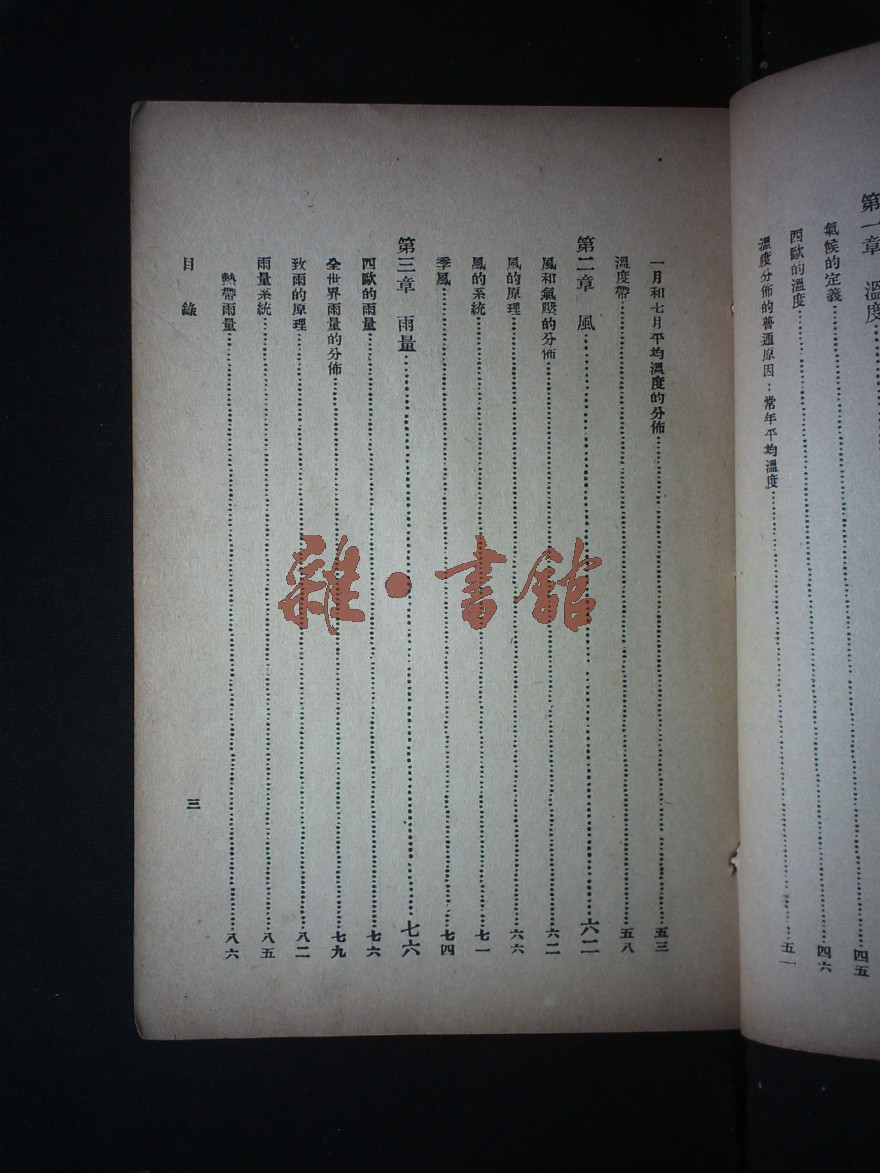 第一章 溫度
氣候的定義……四五
西歐的溫度……四六
溫度分佈的普通原因：常年平均溫度……五一
一月和七月平均溫度的分佈……五三
溫度帶……五八
第二章 風……六二
風和氣壓的分佈……六二
風的原理……六六
風的系統……七一
季風……七四
第三章 雨量……七六
西歐的雨量……七六
全世界雨量的分佈……七九
致雨的原理……八二
雨量系統……八五
熱帶雨量……八六
目錄
三
雜·書館